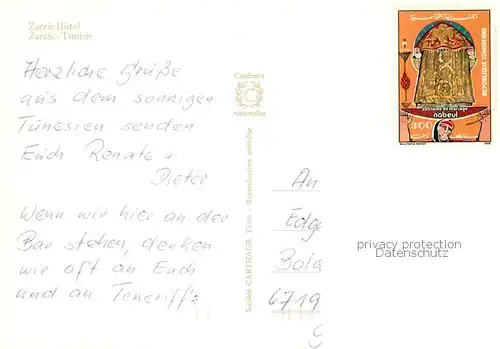 Zarzis Hôtel
Zarzis - Tunisie
Herzliche Grüße
aus dem sonnigen
Tunesien senden
Euch Renate +
Dieter
Wenn wir hier an der
Bar stehen, denken
wir oft an Euch
und an Teneriffa
Couleurs
naturelles
Société CARTHAGE, Tunis - Reproduction interdite
REPUBLIQUE TUNISIENNE
costume de mariage
nabeul
300
An
Edg
Bo
6719
privacy protection
Datenschutz